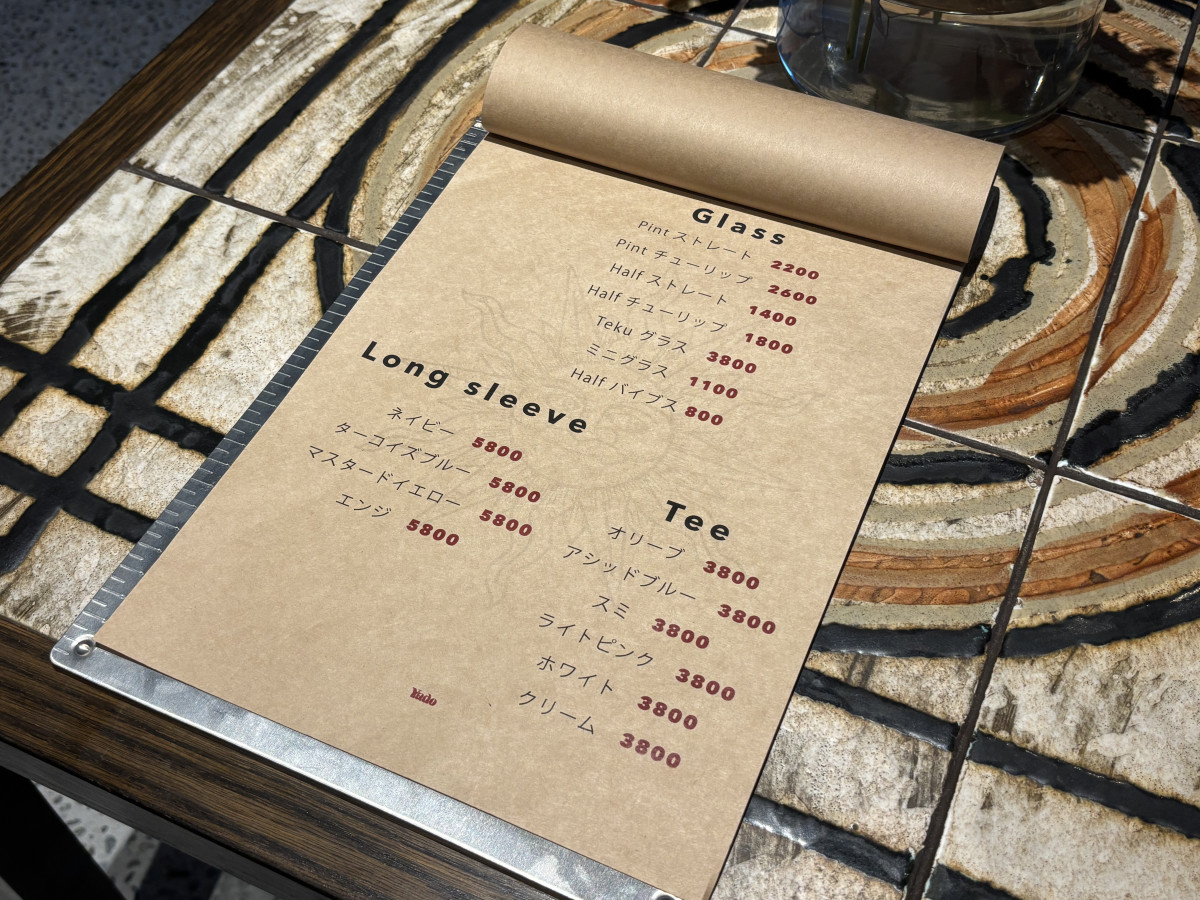 Glass
Pint ストレート 2200
Pint チューリップ 2600
Half ストレート 1400
Half チューリップ 1800
Teku グラス 3800
ミニグラス 1100
Half パイプス 800
Long sleeve
ネイビー 5800
ターコイズブルー 5800
マスタードイエロー 5800
エンジ 5800
Tee
オリーブ 3800
アシッドブルー 3800
スミ 3800
ライトピンク 3800
ホワイト 3800
クリーム 3800